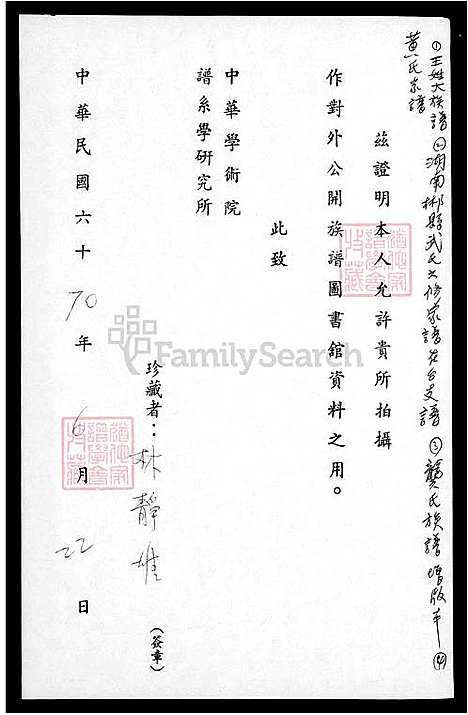 ①王姓大族譜②湖南郴縣武氏六修家譜在台支譜③龔氏族譜增版本④
黃氏宗譜
茲證明本人允許貴所拍攝
作對外公開族譜圖書館資料之用。
此致
中華學術院
譜系學研究所
珍藏者：林靜雄（簽章）
中華民國六十70年6月22日
FamilySearch